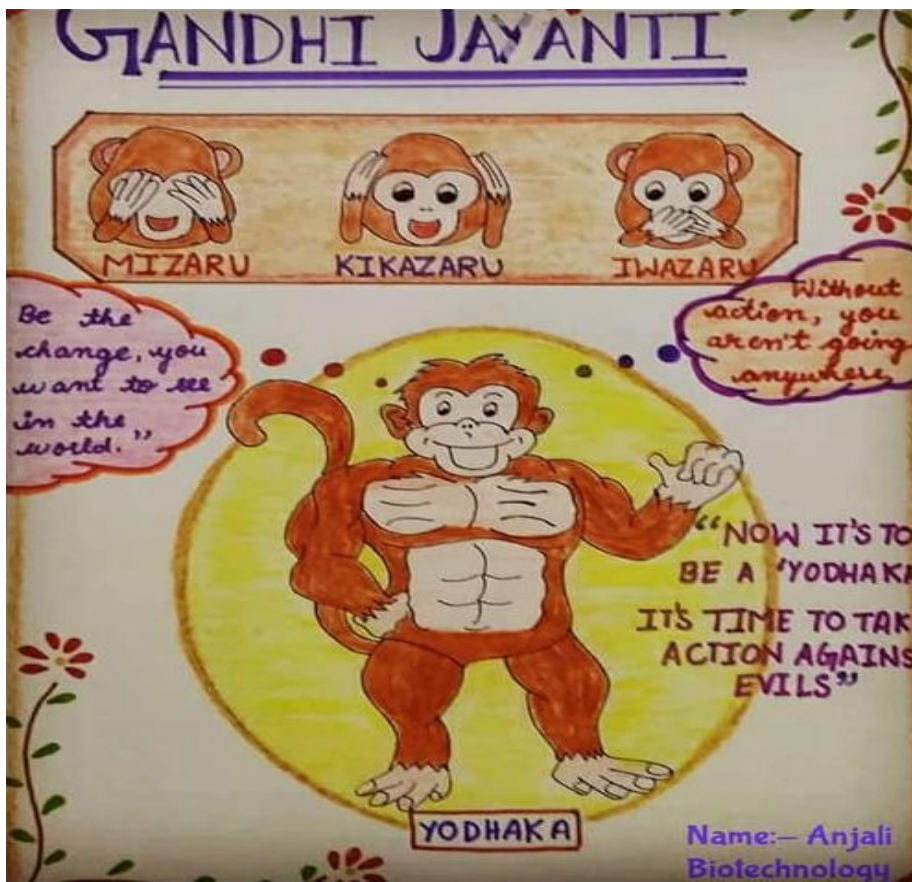 GANDHI JAYANTI
MIZARU KIKAZARU IWAZARU
Be the
change, you
want to see
in the
world."
Without
action, you
aren't going
anywhere
"NOW IT'S TO
BE A 'YODHAKA
IT'S TIME TO TAK
ACTION AGAINS
EVILS"
YODHAKA
Name:– Anjali
Biotechnology